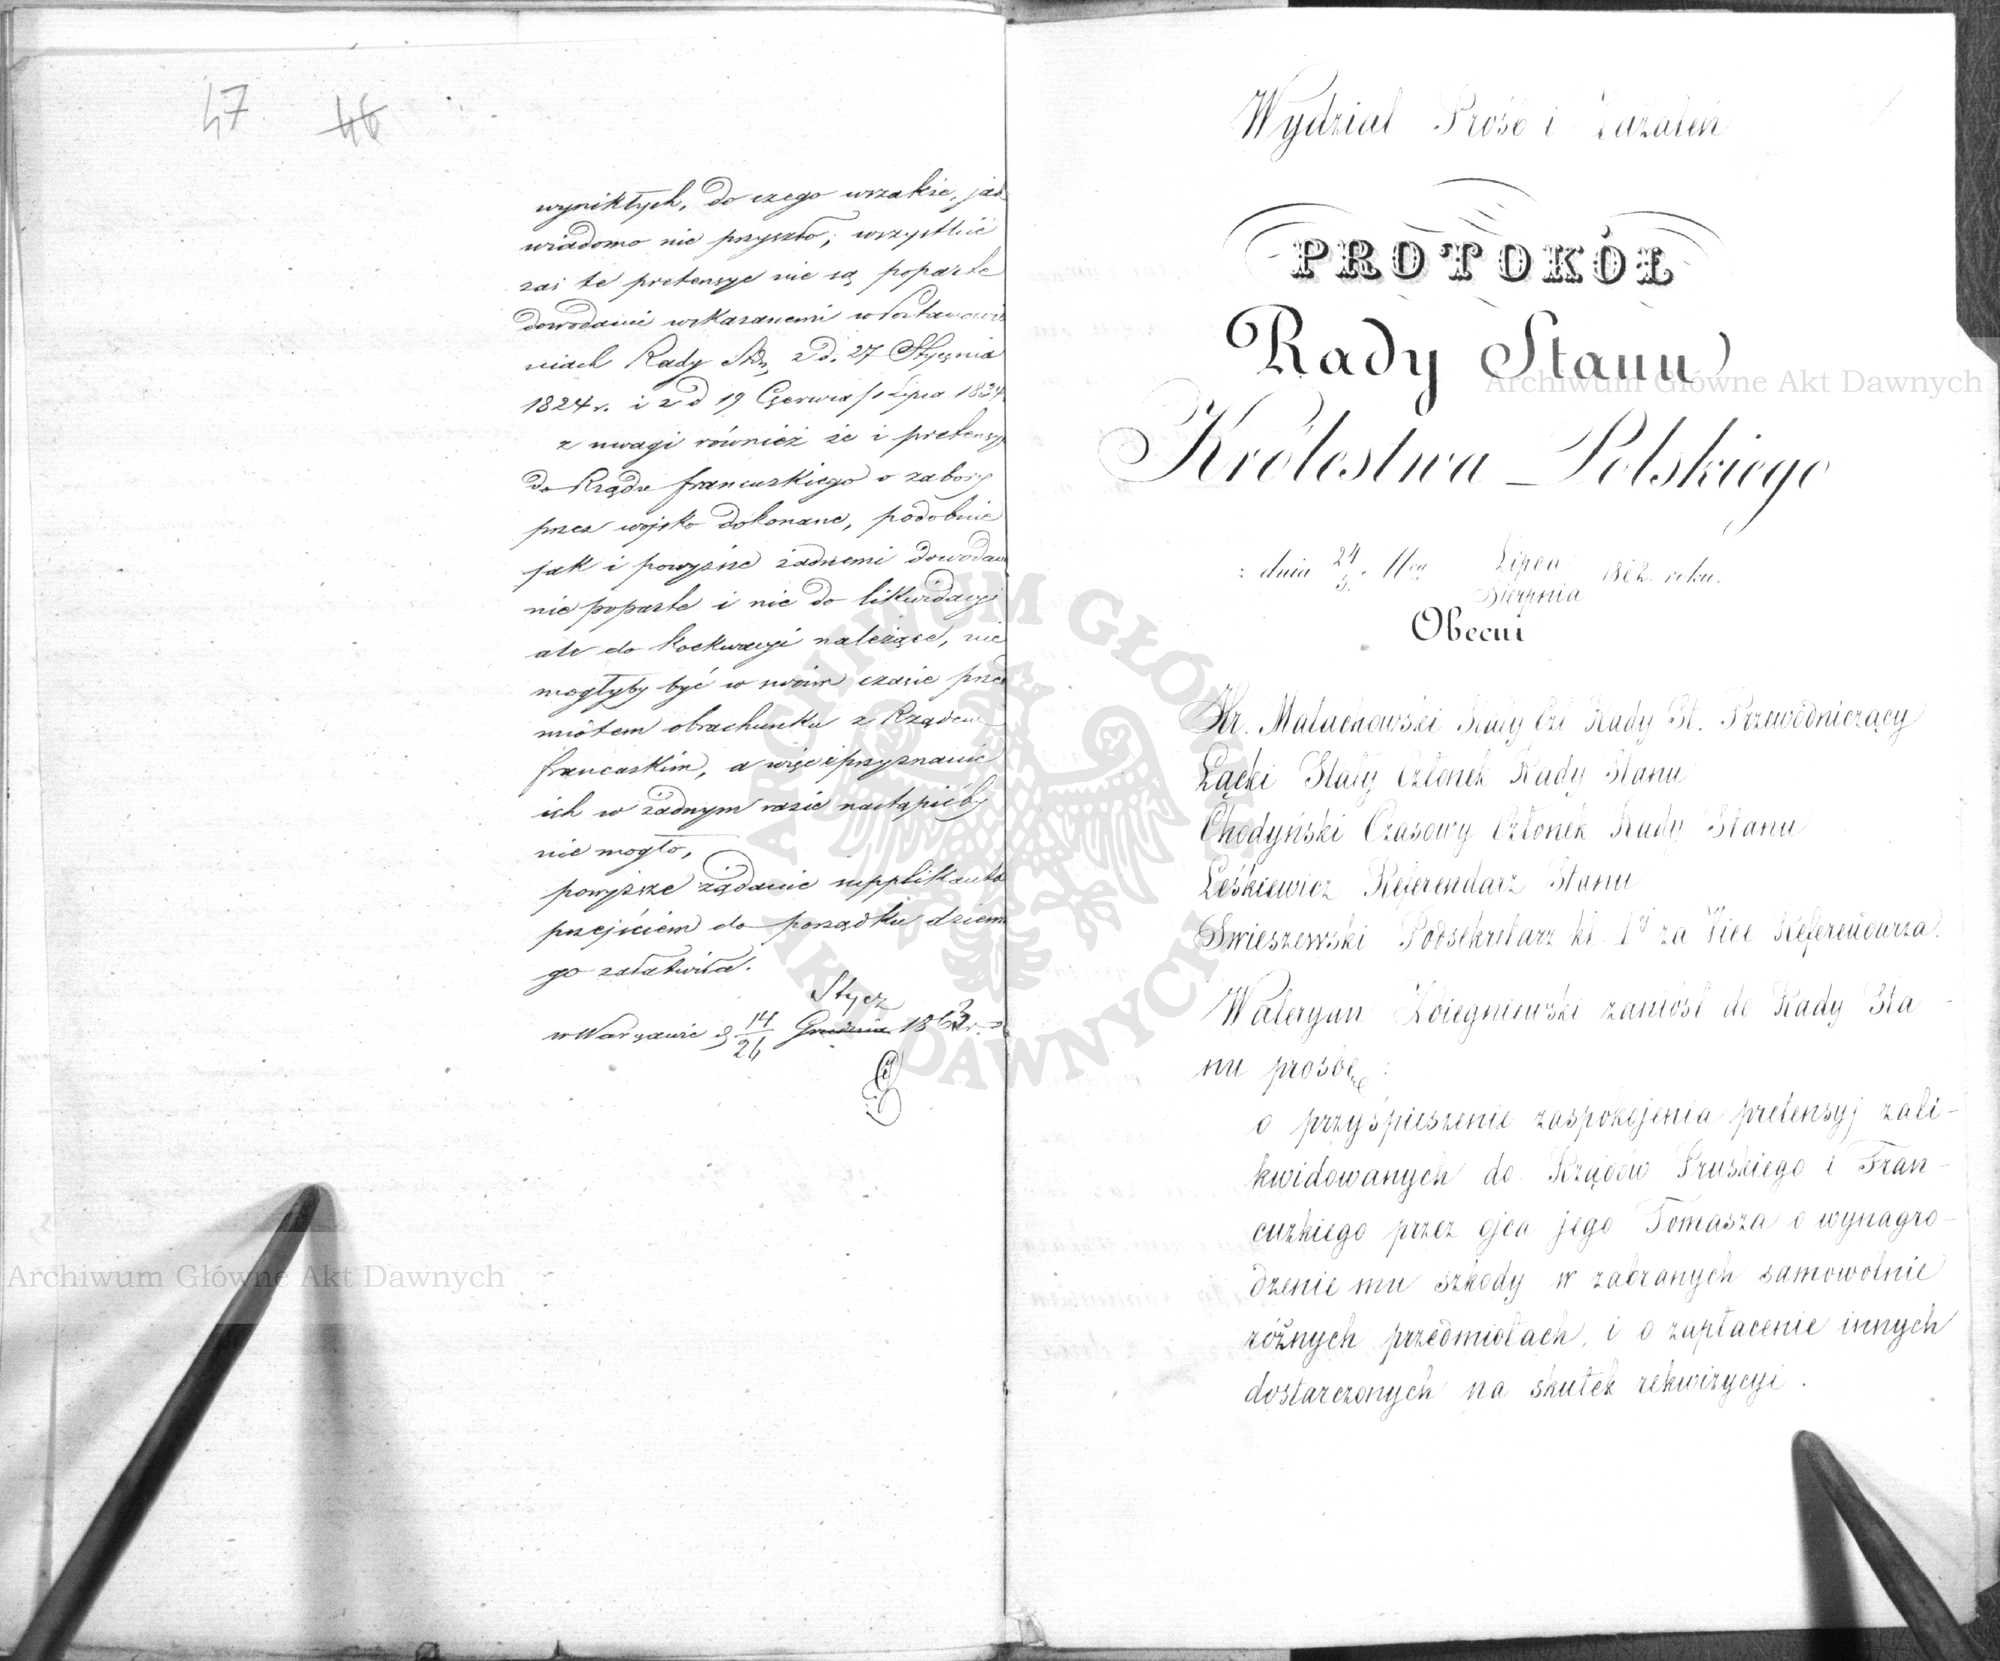 47 46
wynikłych, do czego wszakże, jak
wiadomo nie przyszło; wszystkie
zaś te pretensye nie są poparte
dowodami wskazanemi w Postanowie
niach Rady Adm z d. 27 Stycznia
1824 r. i z d 19 Czerwca / 1 Lipca 1834
z uwagi również że i pretensye
do Rządu francuzkiego o zabory
przez wojsko dokonane, podobnie
jak i powyższe żadnemi dowodami
nie poparte i nie do likwidacyi
ale do należące, nie
mogłyby być w swoim czasie przed
miotem obrachunku z Rządem
francuzkim, a więc i przyznanie
ich w żadnym razie nastąpić by
nie mogło,
powyższe żądanie supplikanta
przejściem do porządku dzienne
go załatwiła.
Stycz
w Warszawie d 14/26 Grudnia 1863 r.
Wydział Prośb i Zażaleń
PROTOKÓŁ
Rady Stanu
Królestwa Polskiego
z dnia 24/5 Mca Lipca/Sierpnia 1862 roku.
Obecni
Hr. Małachowski Stały Czł. Rady St. Przewodniczący
Łącki Stały Członek Rady Stanu
Chodyński Czasowy Członek Rady Stanu
Leśkiewicz Referendarz Stanu
Swieszewski Podsekretarz kl. 1ej za Vice Referendarza.
Waleryan Zbiegniewski zaniósł do Rady Sta-
nu prośbę:
o przyśpieszenie zaspokojenia pretensyj zali-
kwidowanych do Rządów Pruskiego i Fran-
cuzkiego przez ojca jego Tomasza o wynagro-
dzenie mu szkody w zabranych samowolnie
różnych przedmiotach, i o zapłacenie innych
dostarczonych na skutek rekwizycyi.
Archiwum Główne Akt Dawnych
Archiwum Główne Akt Dawnych
ARCHIWUM GŁÓWNE AKT DAWNYCH